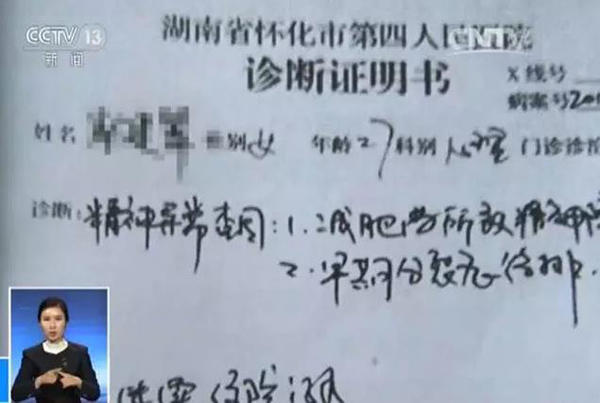 CCTV 13
新闻
湖南省怀化市第四人民医院
诊断证明书
X线号
病案号
姓名 别 女 年龄 27 科别 心理 门诊
诊断: 精神异常查因: 1. 减肥药所致精神
2. 早期分裂症待排.